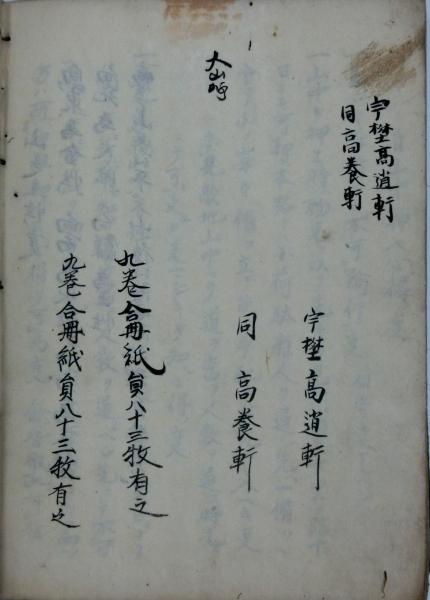 宇埜高逍軒
同高養軒
大山呼
宇埜高逍軒
同高養軒
九巻合冊紙員八十三牧有之
九巻合冊紙員八十三牧有之